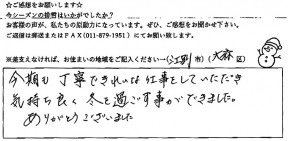 ☆ご感想をお願いします☆
今シーズンの排雪はいかがでしたか？
お客様の声が、私たちの原動力になっています。ぜひ、ご感想をお聞かせ下さい。
ご返信は郵送またはFAX(011-879-1951)にてお願い致します。
※差支えなければ、お住まいの地域をご記入ください→(江別 市)(大麻 区)
今期も丁寧できれいな仕事をしていただき
気持ち良く冬を過ごす事ができました。
ありがとうございました